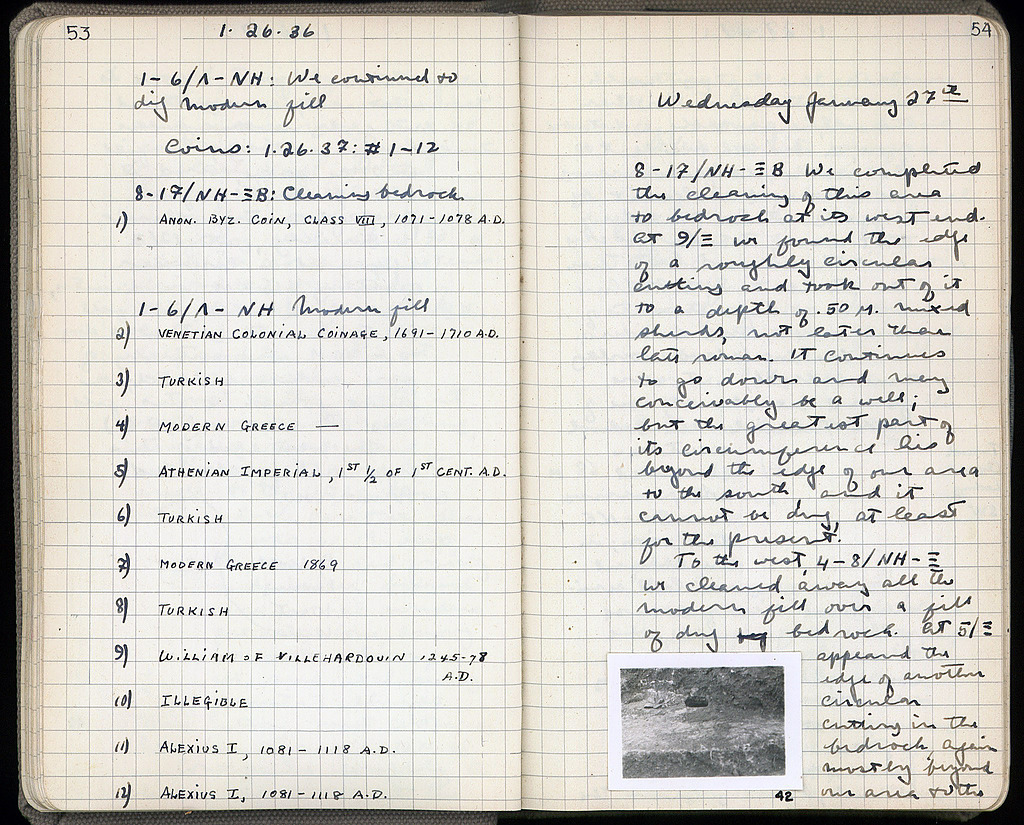 53
1. 26. 36
1-6/Λ-NH: We continued to
dig modern fill
Coins: 1.26.37: # 1-12
8-17/NH-ΞB: Cleaning bedrock
1) ANON. BYZ. COIN, CLASS VIII, 1071-1078 A.D.
1-6/Λ-NH Modern fill
2) VENETIAN COLONIAL COINAGE, 1691-1710 A.D.
3) TURKISH
4) MODERN GREECE —
5) ATHENIAN IMPERIAL, 1ST 1/2 OF 1ST CENT. A.D.
6) TURKISH
7) MODERN GREECE 1869
8) TURKISH
9) WILLIAM OF VILLEHARDOUIN 1245-78
A.D.
10) ILLEGIBLE
11) ALEXIUS I, 1081-1118 A.D.
12) ALEXIUS I, 1081-1118 A.D.
54
Wednesday January 27th
8-17/NH-ΞB We completed
the cleaning of this area
to bedrock at its west end.
At 9/Ξ we found the edge
of a roughly circular
cutting and took out of it
to a depth of .50 M. mixed
sherds, not later than
late roman. It continues
to go down and may
conceivably be a well;
but the greatest part of
its circumference lies
beyond the edge of our area
to the south, and it
cannot be dug, at least
for the present.
To the west, 4-8/NH-Ξ
we cleaned away all the
modern fill over a fill
of dug bedrock. At 5/Ξ
appeared the
edge of another
circular
cutting in the
bedrock, again
mostly beyond
our area to the
42